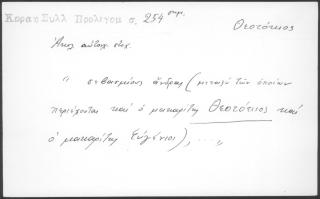 Κοραη Συλλ Προλεγομ σ. 254 σημ.
Θεοτόκιος
" σεβασμίους ἄνδρας (μεταξὺ τῶν ὁποίων
περιέχονται καὶ ὁ μακαρίτης Θεοτόκιος καὶ
ὁ μακαρίτης Εὐγένιος), ... "